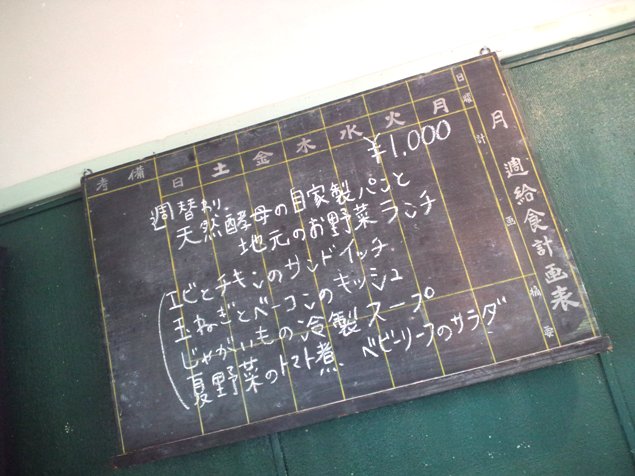 月 週給食計画表
日 曜 計画 摘要
月 火 水 木 金 土 日 備考
¥1,000
週替わり
天然酵母の自家製パンと
地元のお野菜ランチ
エビとチキンのサンドイッチ
玉ねぎとベーコンのキッシュ
じゃがいもの冷製スープ
夏野菜のトマト煮 ベビーリーフのサラダ